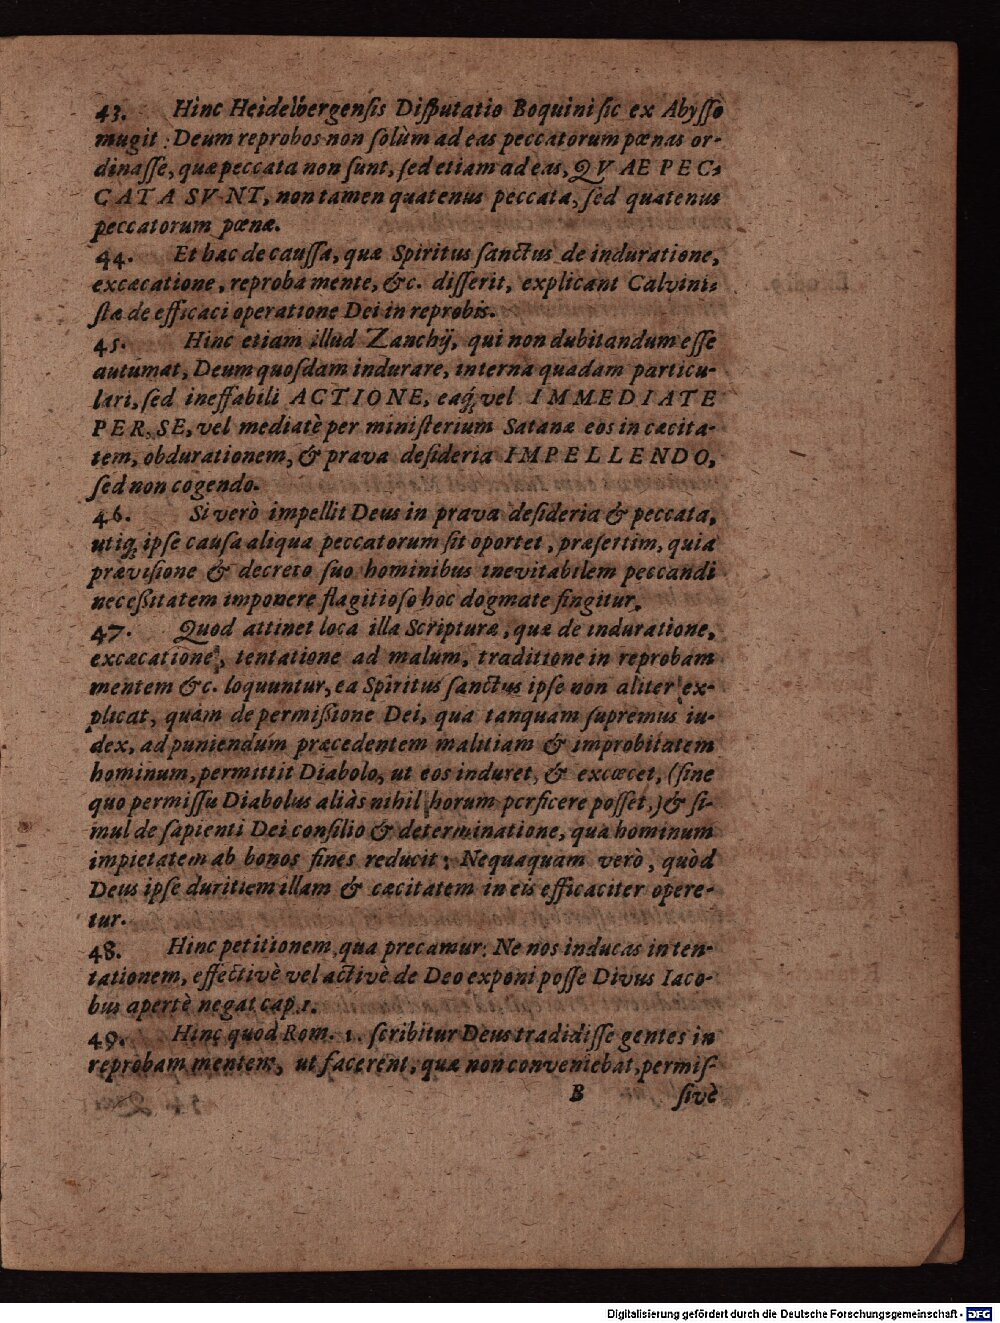 43. Hinc Heidelbergensis Disputatio Boquini sic ex Abysso
mugit: Deum reprobos non solùm ad eas peccatorum pœnas or-
dinasse, quæ peccata non sunt, sed etiam ad eas, QVAE PEC-
CATA SVNT, non tamen quatenus peccata, sed quatenus
peccatorum pœnæ.
44. Et hac de caussa, quæ Spiritus sanctus de induratione,
excæcatione, reproba mente, &c. disserit, explicant Calvini-
stæ de efficaci operatione Dei in reprobis.
45. Hinc etiam illud Zanchij, qui non dubitandum esse
autumat, Deum quosdam indurare, interna quadam particu-
lari, sed ineffabili ACTIONE, eaq; vel IMMEDIATE
PER SE, vel mediatè per ministerium Satanæ eos in cæcita-
tem, obdurationem, & prava desideria IMPELLENDO,
sed non cogendo.
46. Si verò impellit Deus in prava desideria & peccata,
utiq; ipse causa aliqua peccatorum sit oportet, præsertim, quia
prævisione & decreto suo hominibus inevitabilem peccandi
necessitatem imponere flagitioso hoc dogmate fingitur.
47. Quod attinet loca illa Scripturæ, quæ de induratione,
excæcatione, tentatione ad malum, traditione in reprobam
mentem &c. loquuntur, ea Spiritus sanctus ipse non aliter ex-
plicat, quàm de permissione Dei, qua tanquam supremus iu-
dex, ad puniendum præcedentem malitiam & improbitatem
hominum, permittit Diabolo, ut eos induret, & excœcet, (sine
quo permissu Diabolus aliàs nihil horum perficere posset,) & si-
mul de sapienti Dei consilio & determinatione, qua hominum
impietatem ab bonos fines reducit: Nequaquam verò, quòd
Deus ipse duritiem illam & cæcitatem in eis efficaciter opere-
tur.
48. Hinc petitionem, qua precamur: Ne nos inducas in ten-
tationem, effectivè vel activè de Deo exponi posse Divus Iaco-
bus apertè negat cap. 1.
49. Hinc quod Rom. 1. scribitur Deus tradidisse gentes in
reprobam mentem, ut facerent, quæ non conveniebat, permis-
B sivè
Digitalisierung gefördert durch die Deutsche Forschungsgemeinschaft - DFG